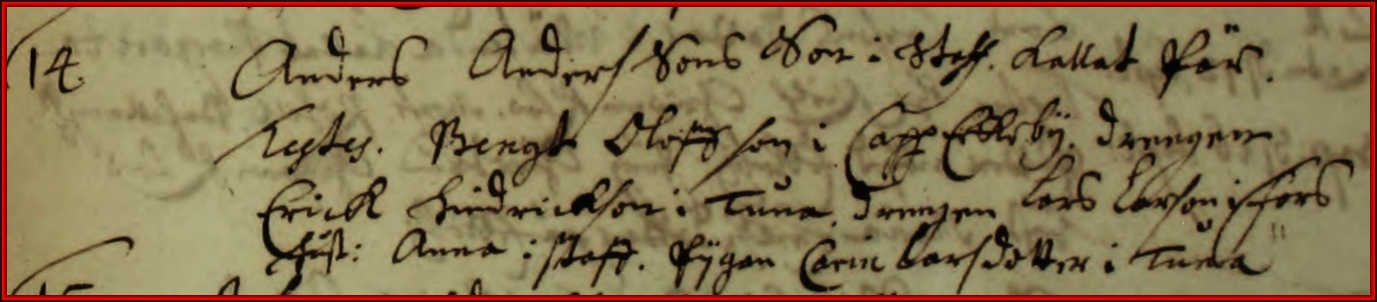 14. Anders Anders Sons Son i Staff. kallat Pär.
Testes. Bengt Olofsson i Capp Ekleby. drengen
Erick Hindrickson i Tuna. drengen Lars Larson i fors
Hust: Anna i Staff. Pijgan Carin Larsdotter i Tuna